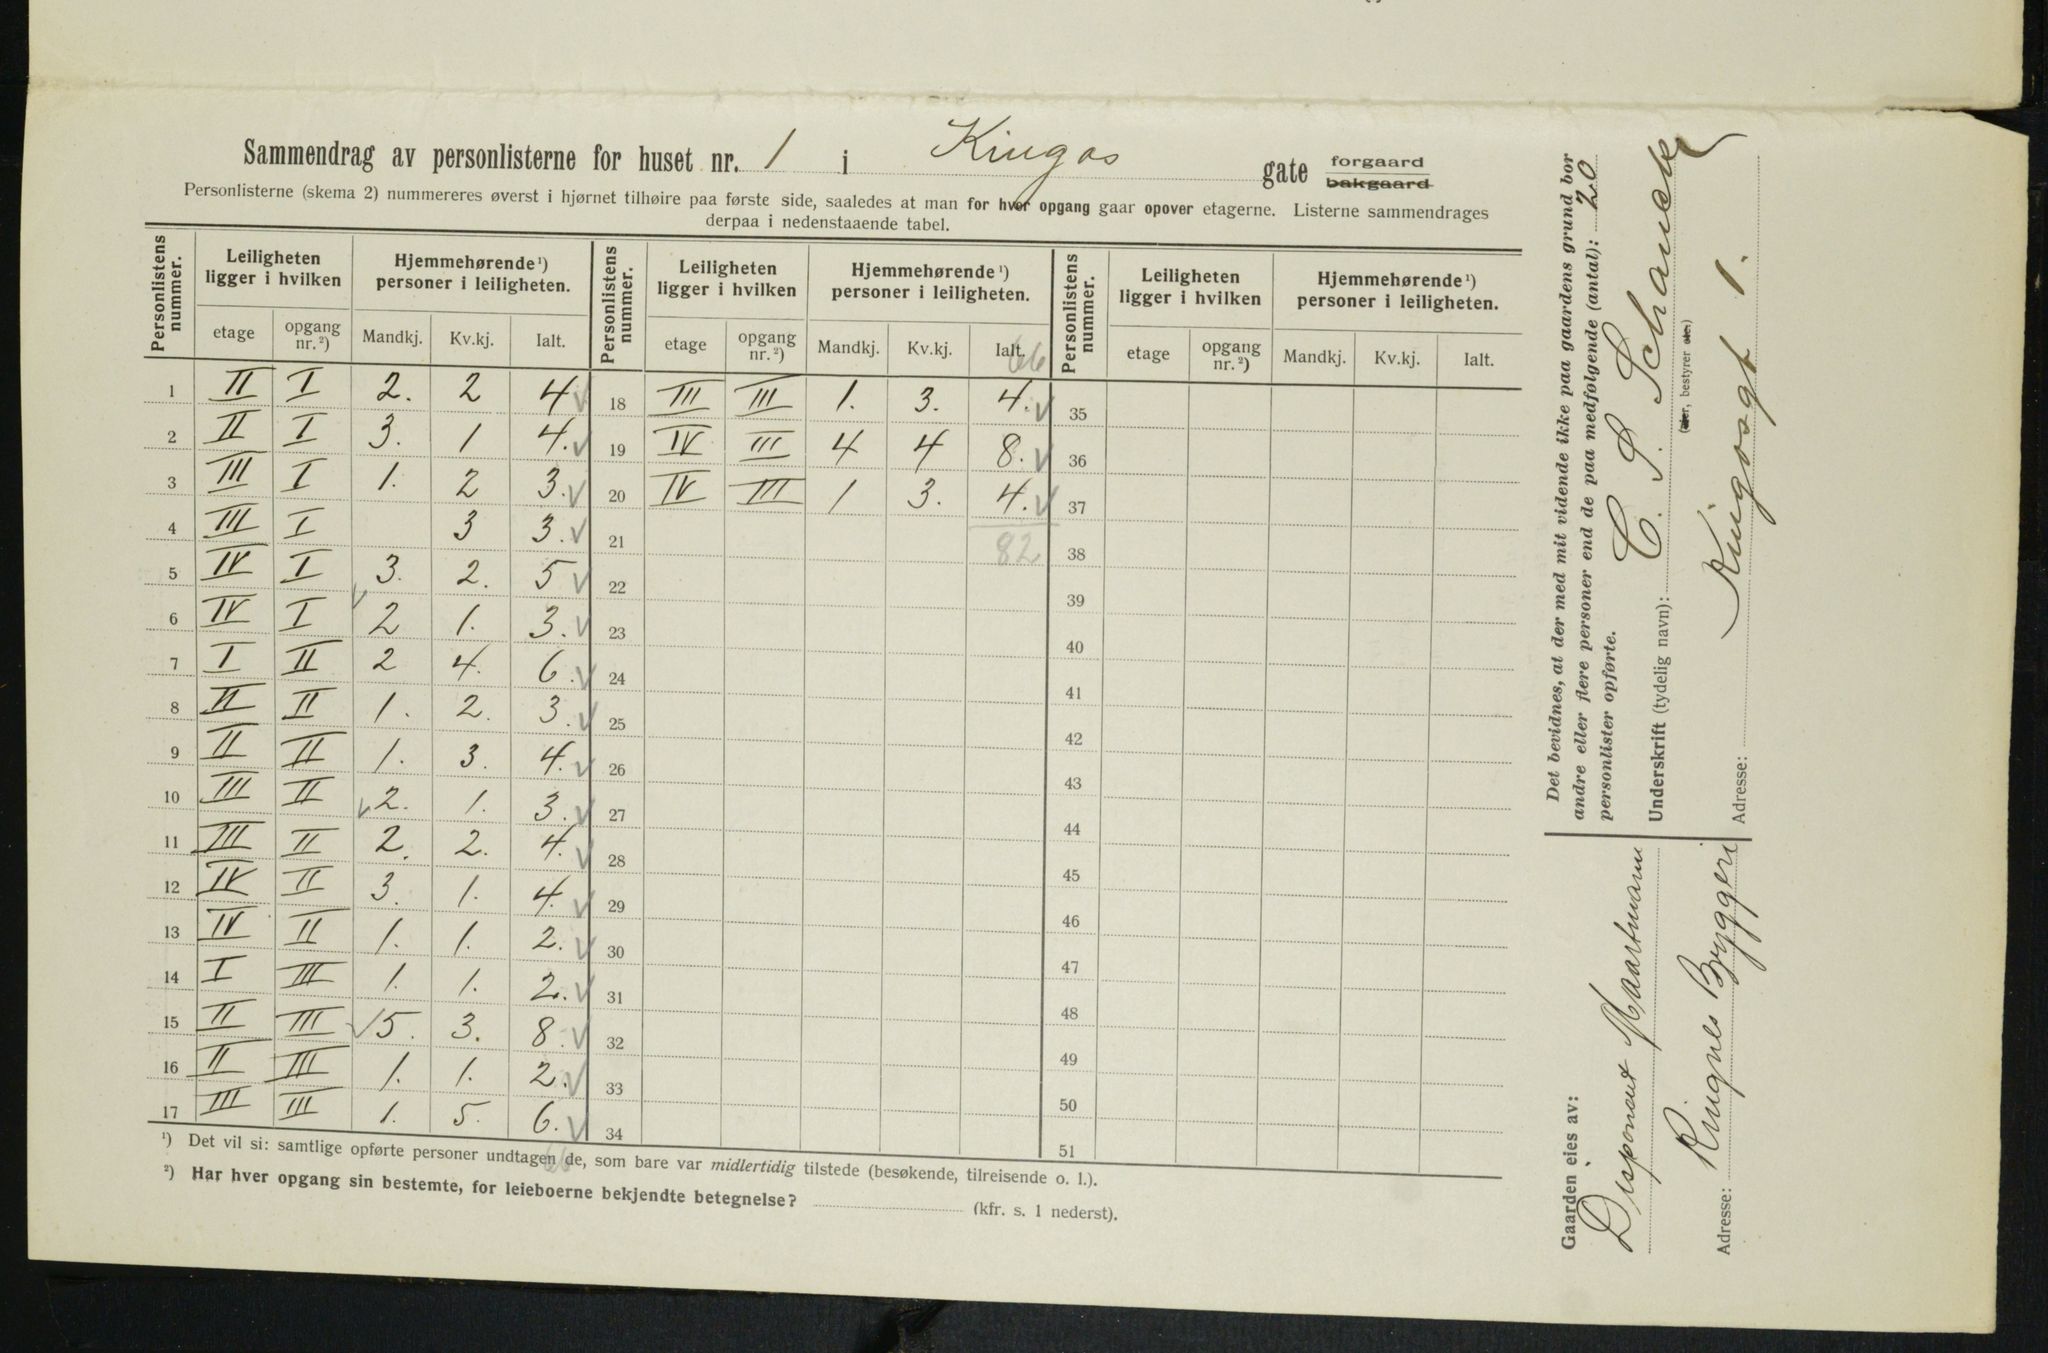 Sammendrag av personlisterne for huset nr. 1 i Kingos gate forgaard bakgaard
Personlisterne (skema 2) nummereres øverst i hjørnet tilhøire paa første side, saaledes at man for hver opgang gaar opover etagerne. Listerne sammendrages
derpaa i nedenstaaende tabel.
Personlistens nummer. Leiligheten ligger i hvilken Hjemmehørende ¹) personer i leiligheten. Personlistens nummer. Leiligheten ligger i hvilken Hjemmehørende ¹) personer i leiligheten. Personlistens nummer. Leiligheten ligger i hvilken Hjemmehørende ¹) personer i leiligheten.
etage opgang nr. ²) Mandkj. Kv.kj. Ialt. etage opgang nr. ²) Mandkj. Kv.kj. Ialt. etage opgang nr. ²) Mandkj. Kv.kj. Ialt.
66
1 II I 2. 2 4 18 III III 1. 3. 4. 35
2 II I 3. 1 4. 19 IV III 4 4 8. 36
3 III I 1. 2 3. 20 IV III 1 3. 4. 37
4 III I 3 3. 21 82 38
5 IV I 3. 2. 5 22 39
6 IV I 2 1. 3. 23 40
7 I II 2 4. 6. 24 41
8 II II 1. 2. 3. 25 42
9 II II 1. 3. 4. 26 43
10 III II 2. 1. 3. 27 44
11 III II 2. 2. 4. 28 45
12 IV II 3. 1. 4. 29 46
13 IV II 1. 1. 2. 30 47
14 I III 1. 1. 2. 31 48
15 II III 5. 3. 8. 32 49
16 II III 1. 1. 2. 33 50
17 III III 1. 5. 6. 34 51
66
¹) Det vil si: samtlige opførte personer undtagen de, som bare var midlertidig tilstede (besøkende, tilreisende o. l.).
²) Har hver opgang sin bestemte, for leieboerne bekjendte betegnelse? (kfr. s. 1 nederst).
Det bevidnes, at der med mit vidende ikke paa gaardens grund bor
andre eller flere personer end de paa medfølgende (antal): 20
personlister opførte.
Underskrift (tydelig navn): C. S. Schancke
(eier, bestyrer etc.)
Adresse: Kingosgt 1.
Gaarden eies av:
Disponent Maartmann
Adresse: Ringnes Bryggeri